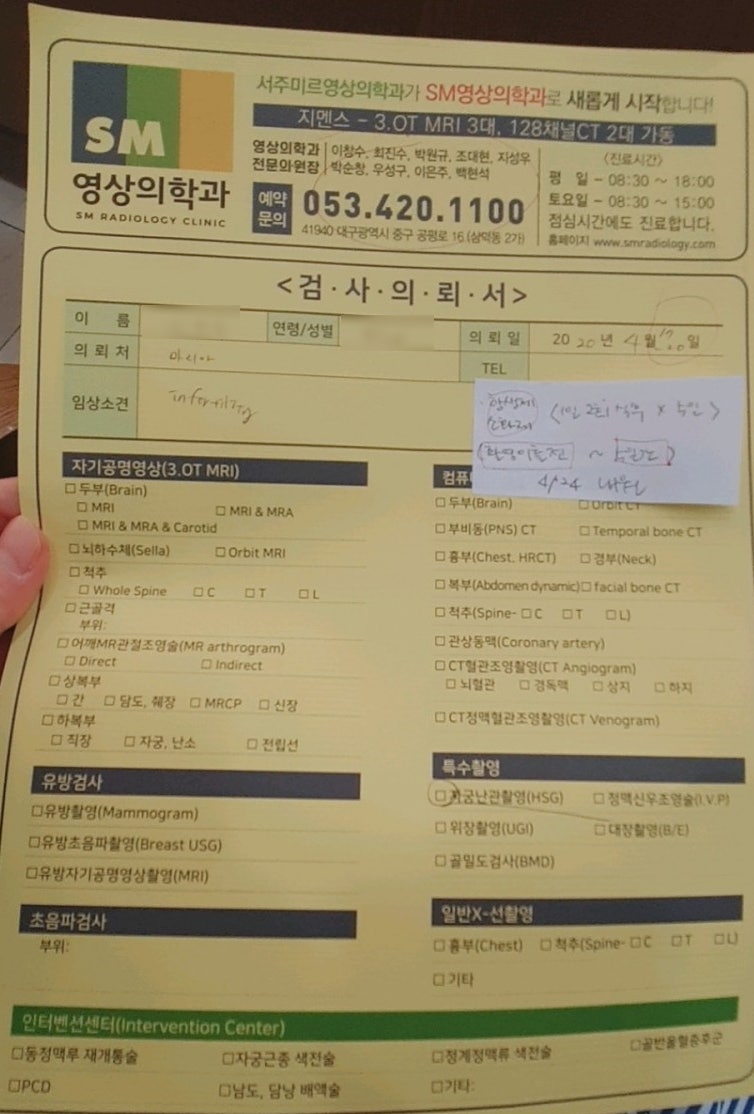 서주미르영상의학과가 SM영상의학과로 새롭게 시작합니다!
SM
영상의학과
SM RADIOLOGY CLINIC
지멘스 - 3.0T MRI 3대, 128채널CT 2대 가동
영상의학과 전문의원장
이창수, 최진수, 박원규, 조대현, 지성우
박순창, 우성구, 이은주, 백현석
예약문의 053.420.1100
41940 대구광역시 중구 공평로 16 (삼덕동 2가)
〈진료시간〉
평 일 - 08:30 ~ 18:00
토요일 - 08:30 ~ 15:00
점심시간에도 진료합니다.
홈페이지 www.smradiology.com
<검·사·의·뢰·서>
이 름 연령/성별 의뢰일 2020년 4월 20일
의뢰처 마리아 TEL
임상소견 Infertility
항생제
4/24
자기공명영상(3.0T MRI)
□두부(Brain)
□MRI □MRI & MRA
□MRI & MRA & Carotid
□뇌하수체(Sella) □Orbit MRI
□척추
□Whole Spine □C □T □L
□근골격
부위:
□어깨MR관절조영술(MR arthrogram)
□Direct □Indirect
□상복부
□간 □담도, 췌장 □MRCP □신장
□하복부
□직장 □자궁, 난소 □전립선
유방검사
□유방촬영(Mammogram)
□유방초음파촬영(Breast USG)
□유방자기공명영상촬영(MRI)
초음파검사
부위:
□두부(Brain) □Orbit CT
□부비동(PNS) CT □Temporal bone CT
□흉부(Chest, HRCT) □경부(Neck)
□복부(Abdomen dynamic) □facial bone CT
□척추(Spine- □C □T □L)
□관상동맥(Coronary artery)
□CT혈관조영촬영(CT Angiogram)
□뇌혈관 □경동맥 □상지 □하지
□CT정맥혈관조영촬영(CT Venogram)
특수촬영
□자궁난관촬영(HSG) □정맥신우조영술(I.V.P)
□위장촬영(UGI) □대장촬영(B/E)
□골밀도검사(BMD)
일반X-선촬영
□흉부(Chest) □척추(Spine- □C □T □L)
□기타
인터벤션센터(Intervention Center)
□동정맥루 재개통술 □자궁근종 색전술 □정계정맥류 색전술 □골반울혈증후군
□PCD □담도, 담낭 배액술 □기타: